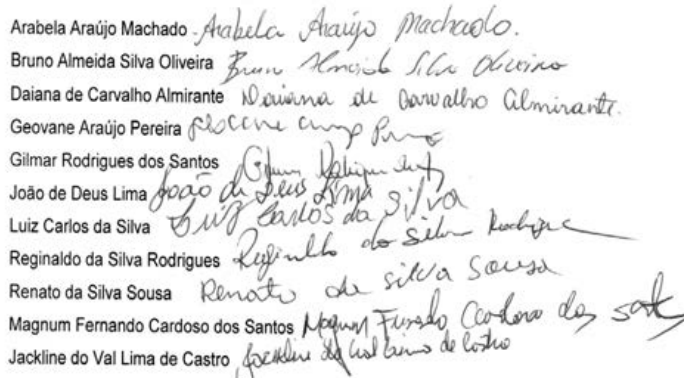 Arabela Araújo Machado Arabela Araújo Machado.
Bruno Almeida Silva Oliveira Bruno Almeida Silva Oliveira
Daiana de Carvalho Almirante Daiana de Carvalho Almirante.
Geovane Araújo Pereira
Gilmar Rodrigues dos Santos Gilmar Rodrigues
João de Deus Lima João de Deus Lima
Luiz Carlos da Silva Luiz Carlos da Silva
Reginaldo da Silva Rodrigues Reginaldo da Silva Rodrigues
Renato da Silva Sousa Renato da Silva Sousa
Magnum Fernando Cardoso dos Santos Magnum Cardoso dos
Jackline do Val Lima de Castro Jackline do Val Lima de Castro